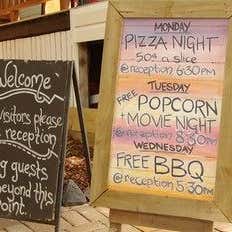 Welcome
visitors please
reception
guests
beyond this
point.
MONDAY
PIZZA NIGHT
50¢ a slice
@ reception 6:30PM
TUESDAY
FREE POPCORN
+ MOVIE NIGHT
@ reception 8:30PM
WEDNESDAY
FREE BBQ
@ reception 5:30PM